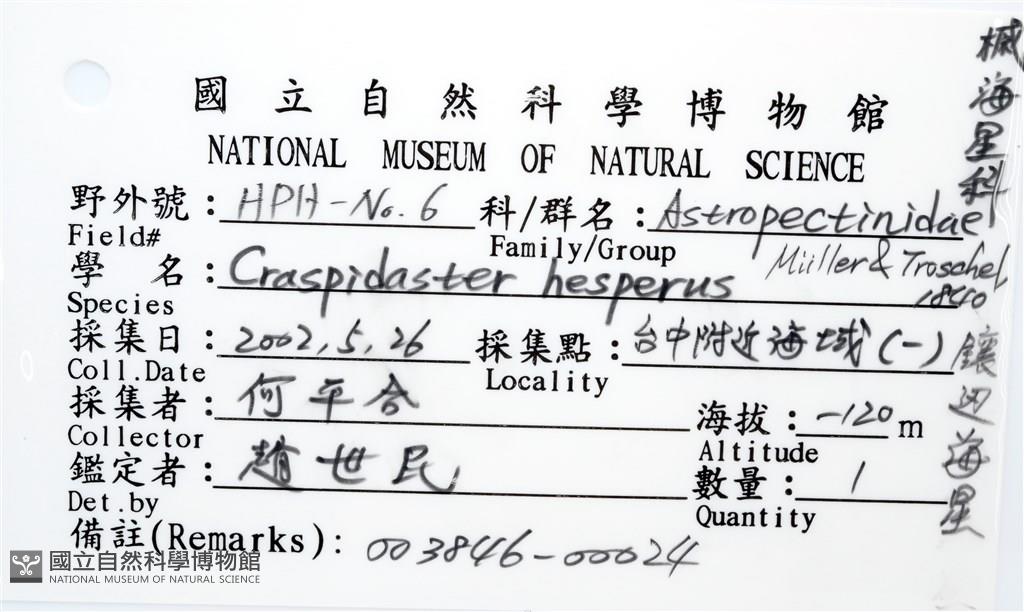 國立自然科學博物館
NATIONAL MUSEUM OF NATURAL SCIENCE
野外號：HPH-No. 6 科/群名：Astropectinidae
Field# Family/Group
學 名：Craspidaster hesperus Müller & Troschel, 1840
Species
採集日：2002, 5, 26 採集點：台中附近海域(一)
Coll.Date Locality
採集者：何平合 海拔：-120 m
Collector Altitude
鑑定者：趙世民 數量：1
Det.by Quantity
備註(Remarks): 003846-00024
槭海星科
鑲边海星
國立自然科學博物館
NATIONAL MUSEUM OF NATURAL SCIENCE